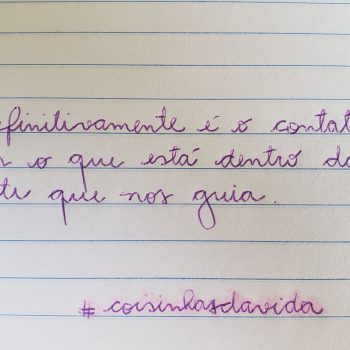 efinitivamente é o contat
o que está dentro d
que nos guia.
#coisinhasdavida